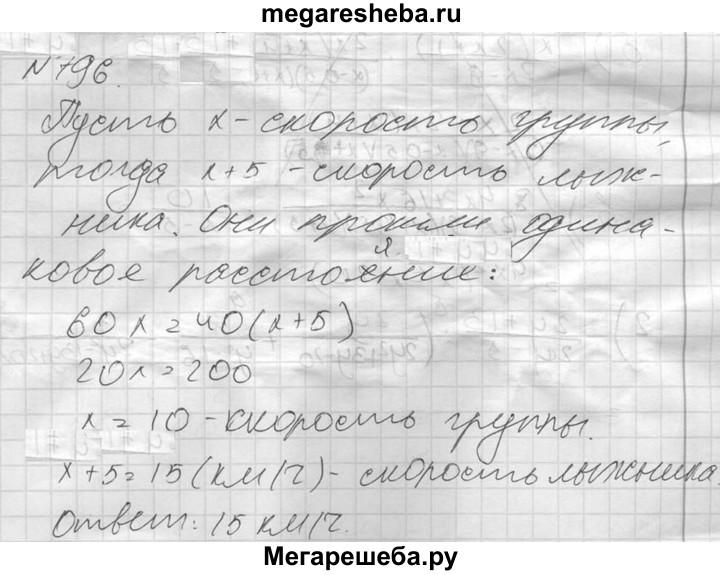 megaresheba.ru
N 796.
Пусть x - скорость группы,
тогда x+5 - скорость лыж-
ника. Они прошли одина-
ковое расстояние:
60x=40(x+5)
20x=200
x=10 - скорость группы.
x+5=15 (км/ч) - скорость лыжника.
Ответ: 15 км/ч.
Мегарешеба.ру